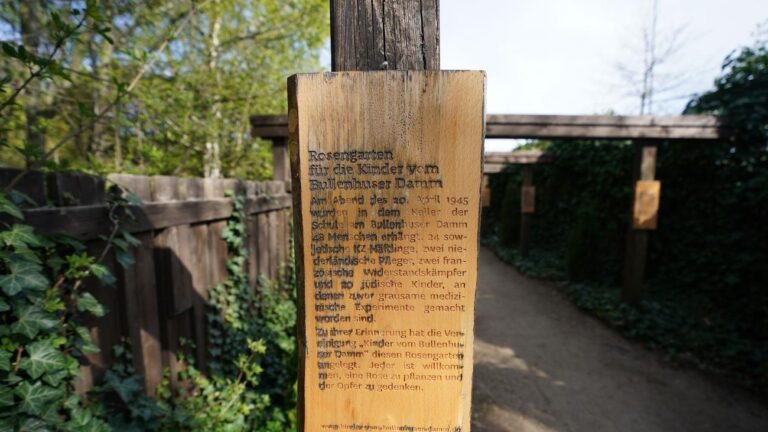 Rosengarten
für die Kinder vom
Bullenhuser Damm
Am Abend des 20. April 1945
wurden in dem Keller der
Schule am Bullenhuser Damm
48 Menschen erhängt. 24 sow-
jetische KZ-Häftlinge, zwei nie-
derländische Pfleger, zwei fran-
zösische Widerstandskämpfer
und 20 jüdische Kinder, an
denen zuvor grausame medizi-
nische Experimente gemacht
worden sind.
Zu ihrer Erinnerung hat die Ver-
einigung „Kinder vom Bullenhu-
ser Damm" diesen Rosengarten
angelegt. Jeder ist willkom-
men, eine Rose zu pflanzen und
der Opfer zu gedenken.